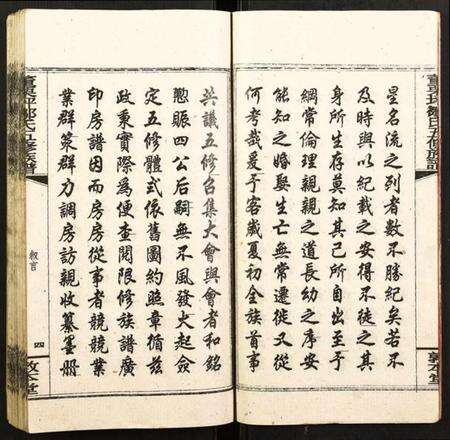 星名流之列者數不勝紀矣若不
及時與以紀載之安得不徒之其
身所生存莫知其己所自出至于
綱常倫理親親之道長幼之序安
能知之婚娶生亡無常遷徙又從
何考哉爰于客歲夏初全族首事
共議五修召集大會與會者和銘
懃賑四公后嗣無不風發大起僉
定五修體式依舊圖約照章循茲
政秉實際為便查閱限修族譜廣
印房譜因而房房從事者兢兢業
業群策群力調房訪親收纂墨册
敘言
四
敦本堂